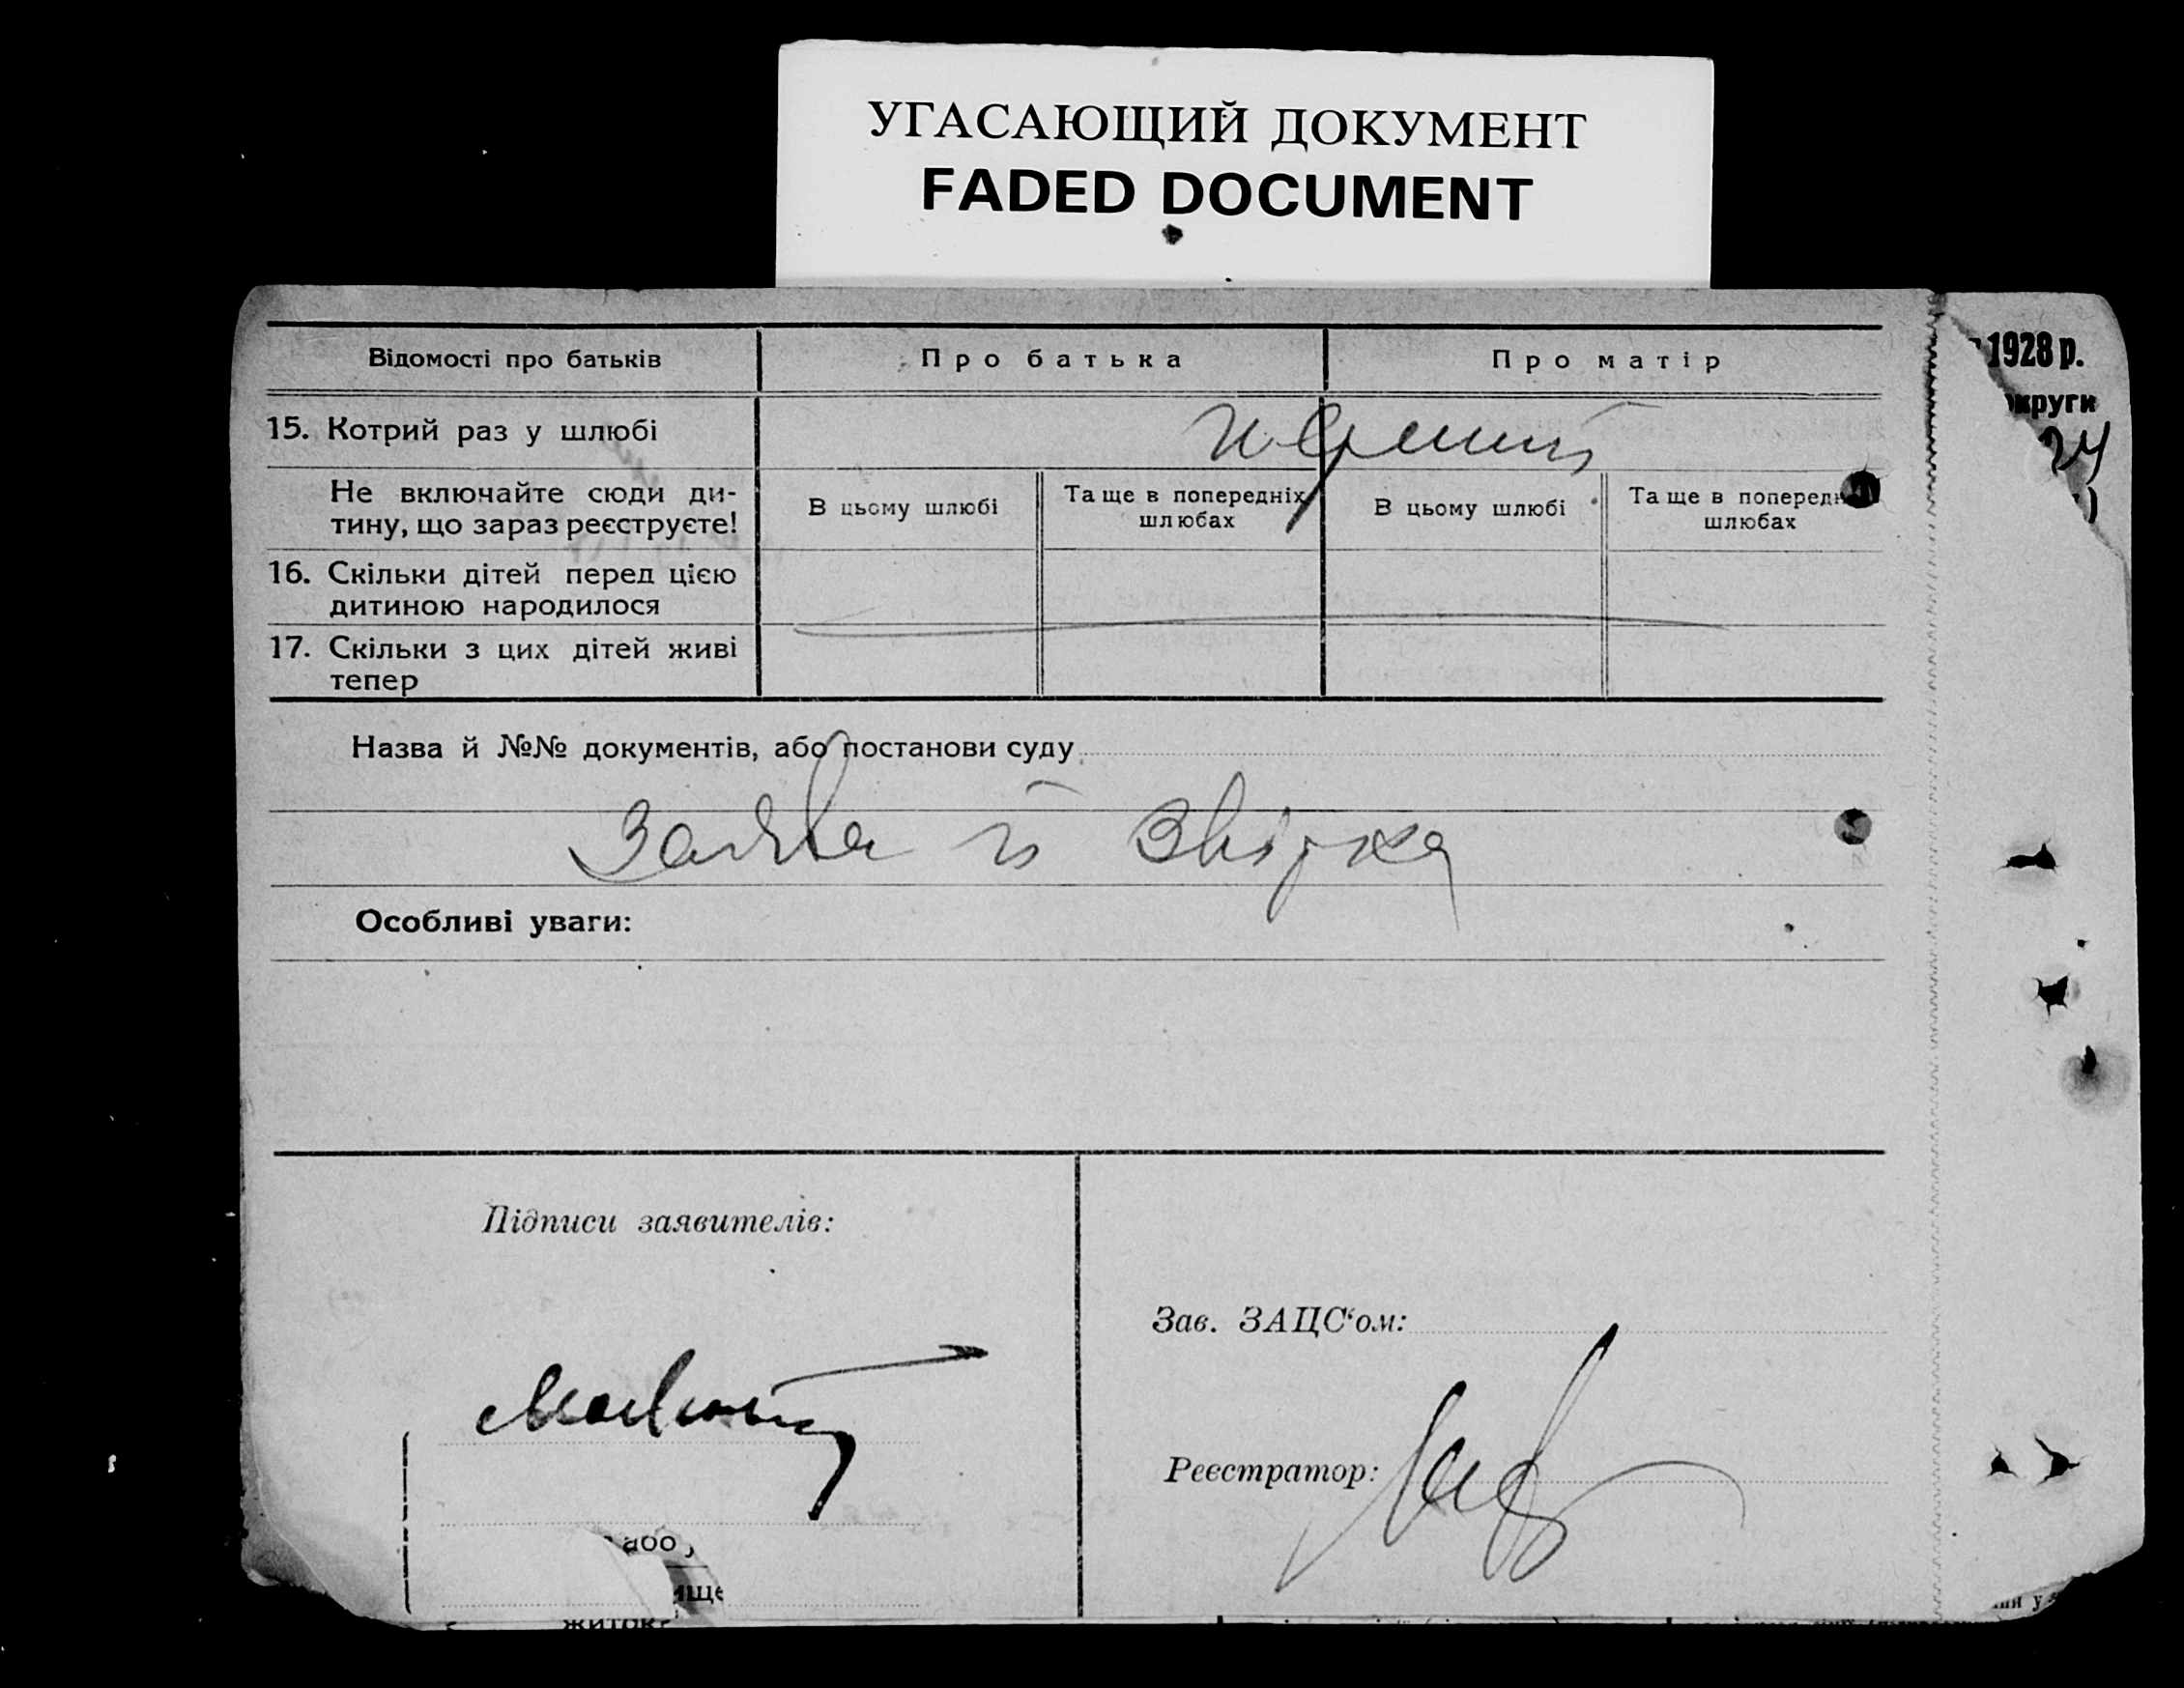 УГАСАЮЩИЙ ДОКУМЕНТ
FADED DOCUMENT
Відомості про батьків
Про батька
Про матір
15. Котрий раз у шлюбі
перший
Не включайте сюди ди-
тину, що зараз реєструєте!
В цьому шлюбі
Та ще в попередніх
шлюбах
В цьому шлюбі
Та ще в поперед
шлюбах
16. Скільки дітей перед цією
дитиною народилося
17. Скільки з цих дітей живі
тепер
Назва й №№ документів, або постанови суду
Заява й Звірка
Особливі уваги:
Підписи заявителів:
Зав. ЗАЦС‘ом:
Реєстратор:
1928 р.
округи
24